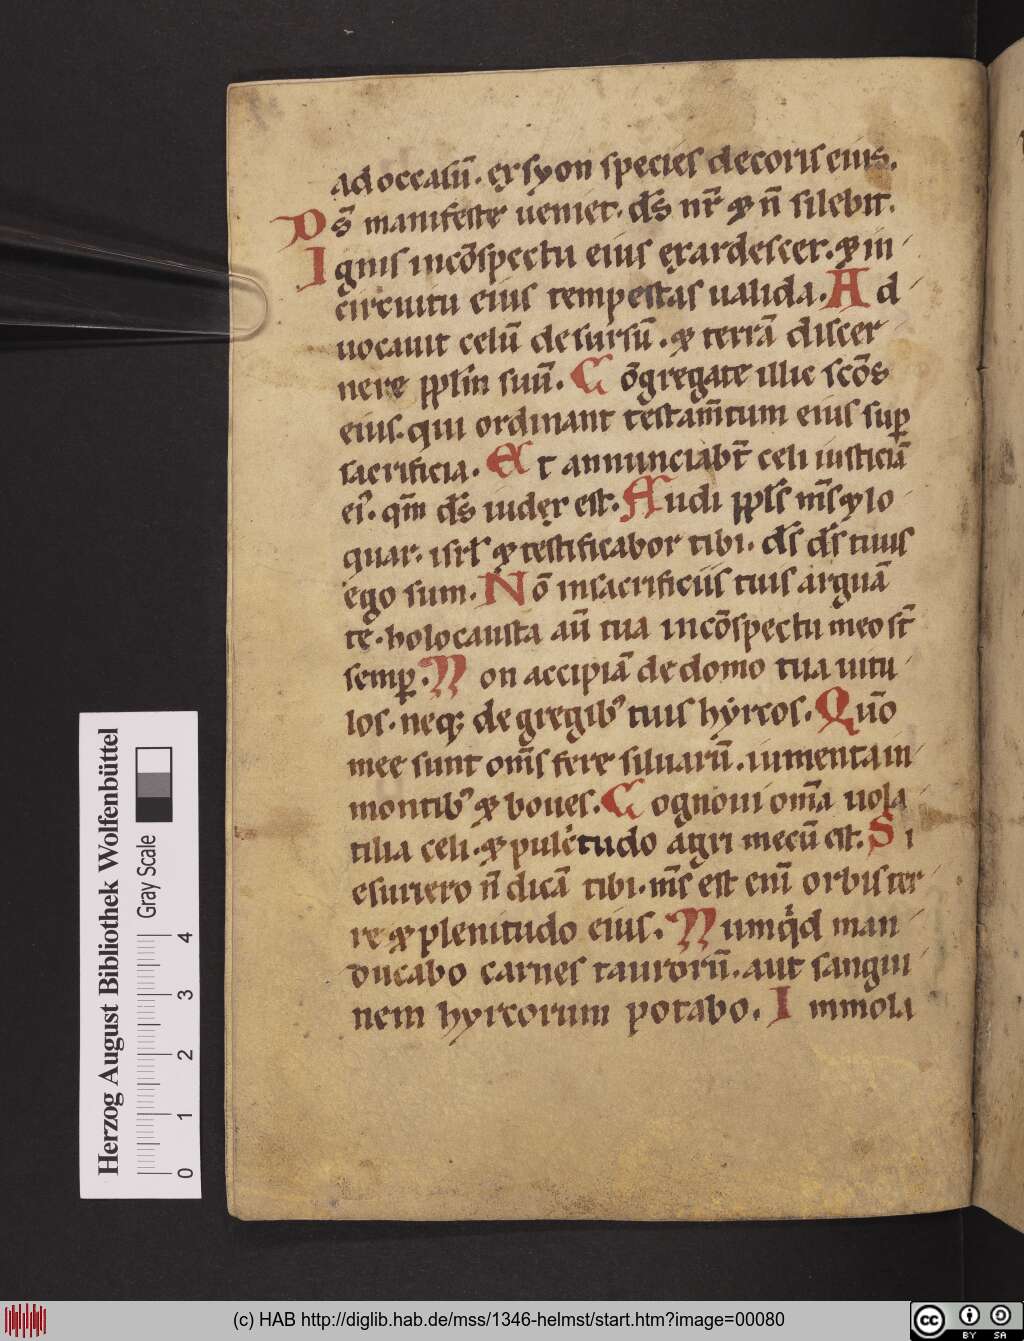 ad occasū. ex syon species decoris eius.
Ds̄ manifeste ueniet. ds̄ nr̄ & n̄ silebit.
Ignis in cōspectu eius exardescet. & in
circuitu eius tempestas ualida. Ad
uocauit celū desursū. & terrā discer
nere pplm̄ suū. Cōgregate illic scōs
eius. qui ordinant testam̄tum eius sup̱
sacrificia. Et annunciabt̄ celi iusticiā
ei᾿. qm̄ ds̄ iudex est. Audi ppls̄ ms̄ & lo
quar. isrl̄ & testificabor tibi. ds̄ ds̄ tuus
ego sum. Nō in sacrificiis tuis arguā
te. holocausta aū tua in cōspectu meo st̄
semp̱. Non accipiā de domo tua uitu
los. neq; de gregib᾿ tuis hyrcos. Qūo
mee sunt om̄s fere siluarū. iumenta in
montib᾿ & boues. Cognoui om̄a uola
tilia celi. & pulcͥtudo agri mecū est. Si
esuriero n̄ dicā tibi. ms̄ est enī orbis ter
re & plenitudo eius. Numqͥd man
ducabo carnes taurorū. aut sangui
nem hyrcorum potabo. Immola
Herzog August Bibliothek Wolfenbüttel
Gray Scale
0 1 2 3 4
(c) HAB http://diglib.hab.de/mss/1346-helmst/start.htm?image=00080
cc BY SA